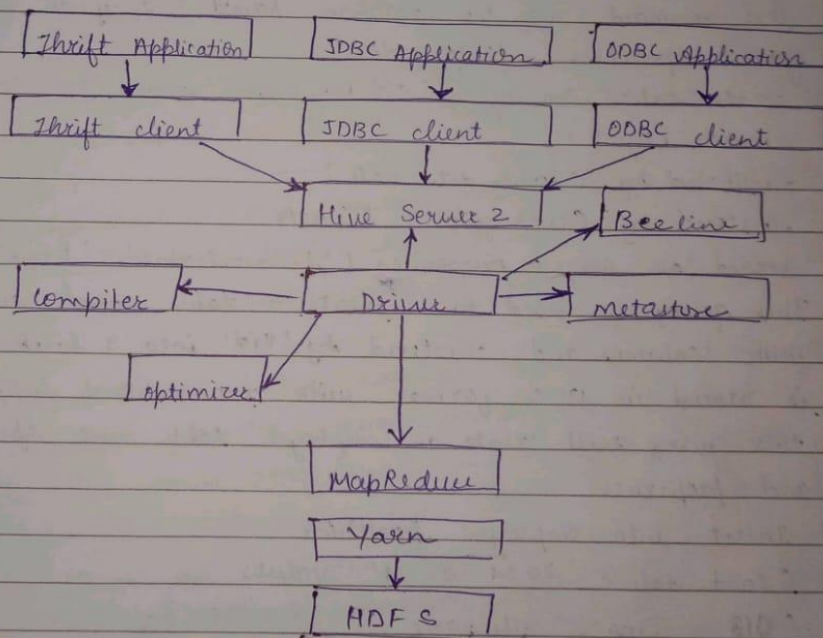 Thrift Application JDBC Application ODBC Application
Thrift client JDBC client ODBC client
Hive Server 2 Beeline
Compiler Driver Metastore
optimizer
MapReduce
Yarn
HDFS